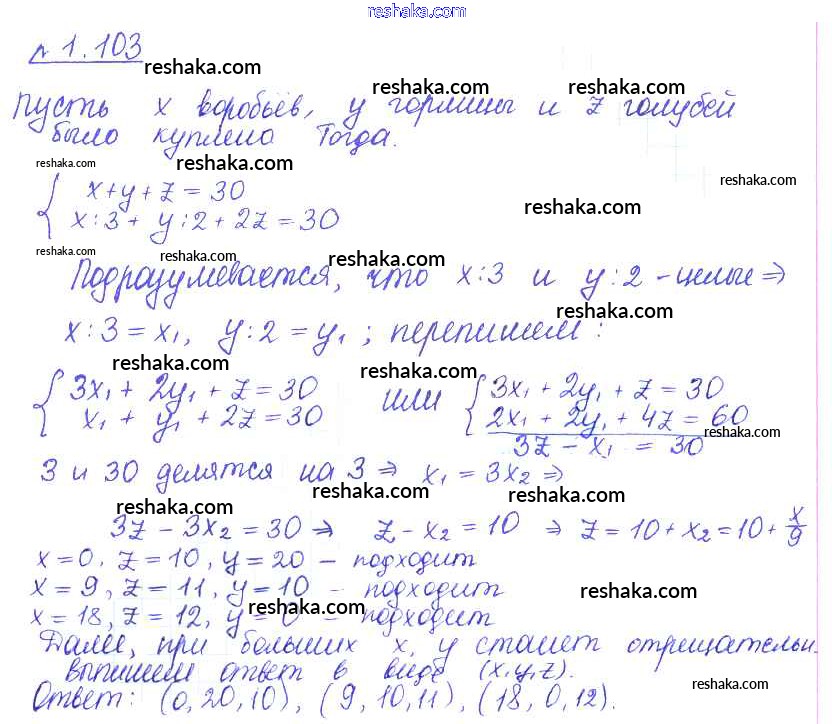 reshaka.com
№ 1.103
reshaka.com
reshaka.com reshaka.com
Пусть x воробьёв, y горлицы и z голубей
было куплено Тогда.
reshaka.com reshaka.com reshaka.com
{ x+y+z=30
x:3+ y:2+2z=30
reshaka.com
reshaka.com reshaka.com reshaka.com
Подразумевается, что x:3 и y:2 - целые ⇒
reshaka.com
x:3 = x₁, y:2 = y₁ ; перепишем:
reshaka.com reshaka.com
{ 3x₁ + 2y₁ + z = 30 или { 3x₁ + 2y₁ + z = 30
x₁ + y₁ + 2z = 30 2x₁ + 2y₁ + 4z = 60
reshaka.com
3z - x₁ = 30
3 и 30 делятся на 3 ⇒ x₁ = 3x₂ ⇒
reshaka.com reshaka.com reshaka.com
3z - 3x₂ = 30 ⇒ z - x₂ = 10 ⇒ z = 10 + x₂ = 10 + x/9
x=0, z=10, y=20 - подходит
x=9, z=11, y=10 - подходит
reshaka.com reshaka.com
x=18, z=12, y=0 - подходит
Далее, при больших x, y станет отрицательн.
выпишем ответ в виде (x,y,z).
reshaka.com
Ответ: (0,20,10), (9,10,11), (18,0,12).